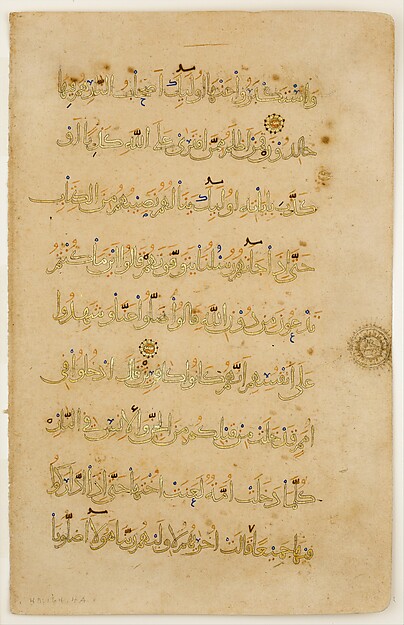 واستكبروا عنها اولئك اصحاب النار هم فيها
خالدون فمن اظلم ممن افترى على الله كذبا او
كذب باياته اولئك ينالهم نصيبهم من الكتاب
حتى اذا جاءتهم رسلنا يتوفونهم قالوا اين ما كنتم
تدعون من دون الله قالوا ضلوا عنا وشهدوا
على انفسهم انهم كانوا كافرين قال ادخلوا في
امم قد خلت من قبلكم من الجن والانس في النار
كلما دخلت امة لعنت اختها حتى اذا اداركوا
فيها جميعا قالت اخراهم لاولاهم ربنا هؤلاء اضلونا